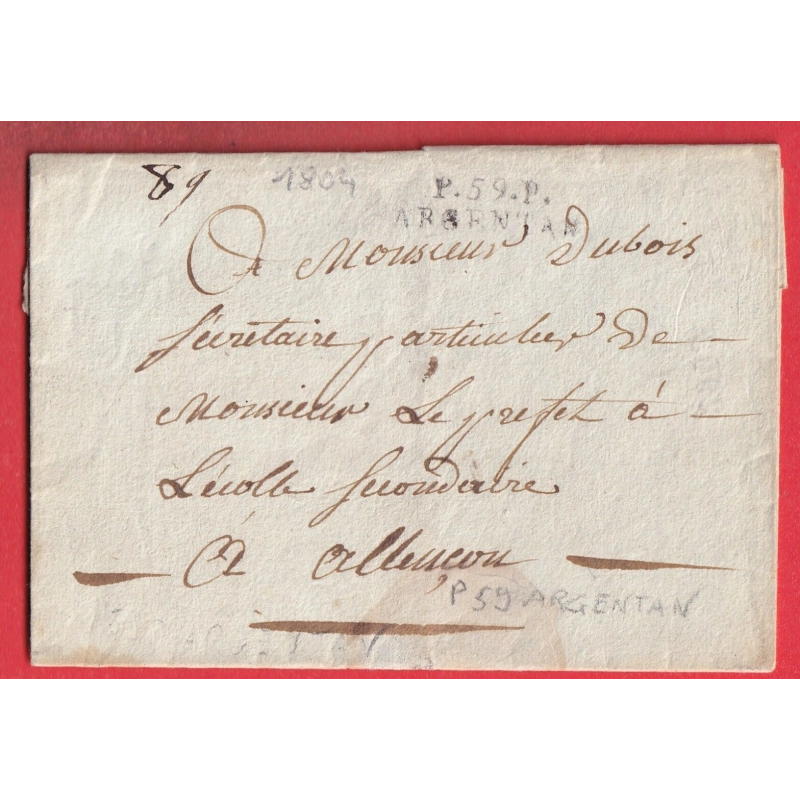 89
1804
P.59.P.
ARGENTAN
A Monsieur Dubois
Sécretaire particulier de
Monsieur Le prefet à
L'écolle secondaire
à allençon
P 59 ARGENTAN